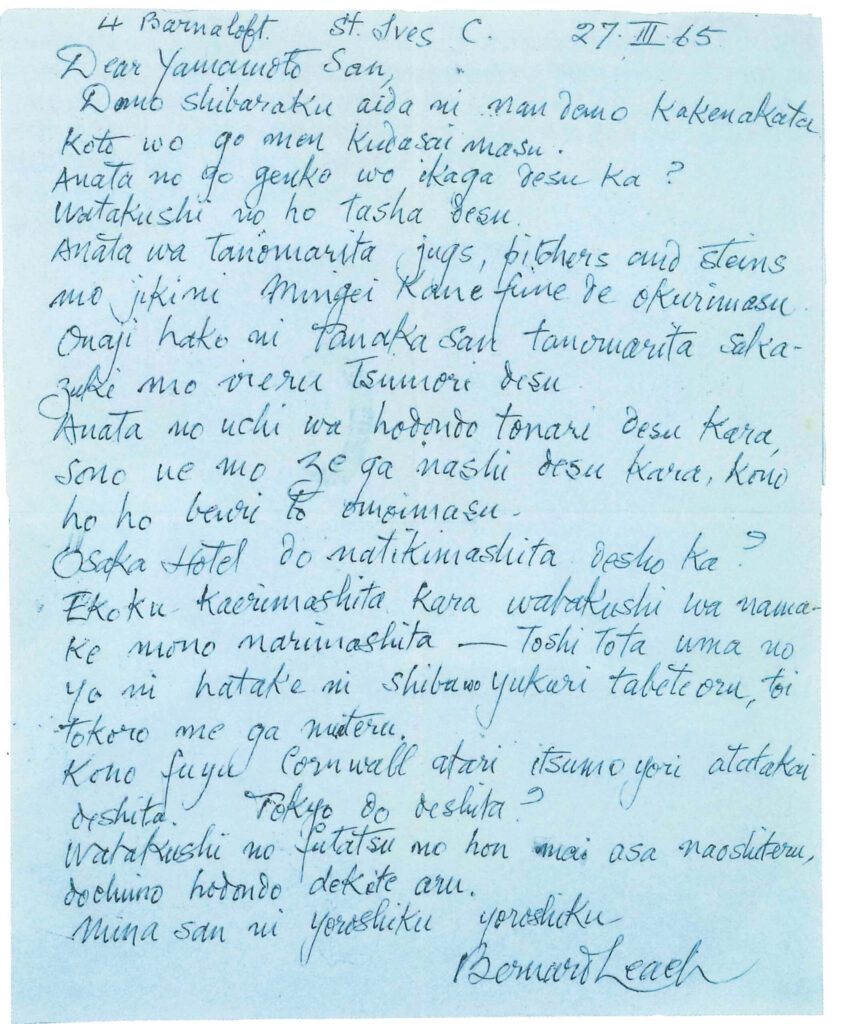 4 Barnaloft. St. Ives C. 27. III. 65.
Dear Yamamoto San,
Domo shibaraku aida ni nan demo kakenakata
koto wo go men kudasai masu.
Anata no go genko wo ikaga desu ka?
Watakushi no ho tasha desu.
Anata wa tanomarita jugs, pitchers and steins
mo jikini Mingei Kane fune de okurimasu.
Onaji hako ni Tanaka San tanomarita saka-
zuki mo ireru tsumori desu
Anata no uchi wa hodondo tonari desu kara,
sono ue mo ze ga nashi desu kara, kono
ho ho benri to omoimasu.
Osaka Hotel do natikimashita desho ka?
Ekoku kaerimashita kara watakushi wa nama-
ke mono narimashita — Toshi Tota uma no
yo ni hatake ni shiba wo yukuri tabete oru, toi
tokoro me ga miteru.
Kono fuyu Cornwall atari itsumo yori atatakai
deshita. Tokyo do deshita?
Watakushi no futatsu no hon mai asa naoshiteru,
dochimo hodondo dekite aru.
Mina san ni yoroshiku yoroshiku
Bernard Leach